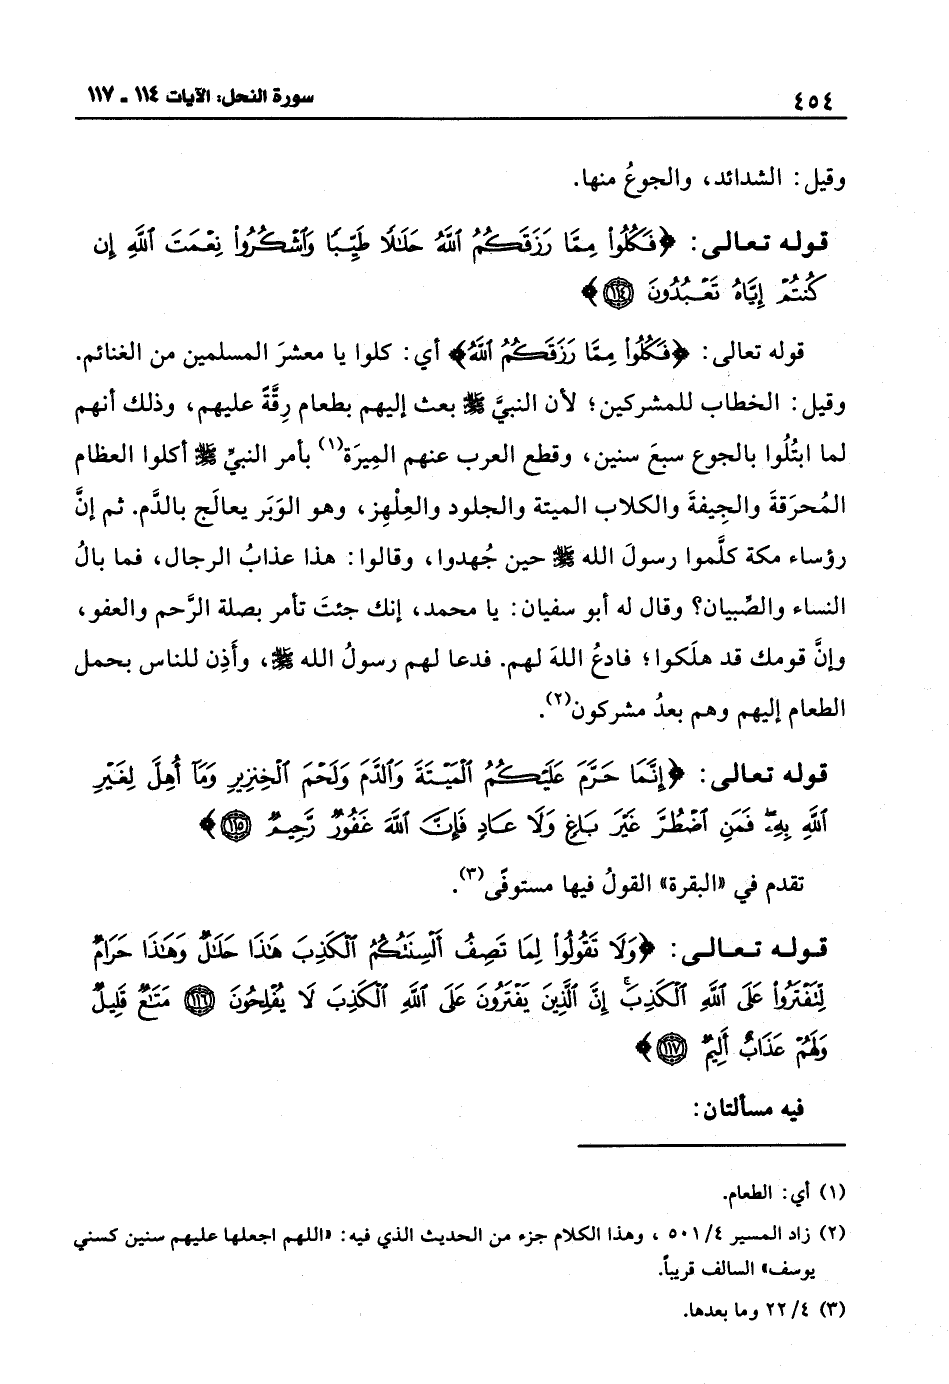 ٤٥٤
سورة النحل: الآيات ١١٤ ـ ١١٧
وقيل: الشدائد، والجوعُ منها.
قوله تعالى: ﴿فَكُلُوا۟ مِمَّا رَزَقَكُمُ ٱللَّهُ حَلَٰلًا طَيِّبًا وَٱشْكُرُوا۟ نِعْمَتَ ٱللَّهِ إِن
كُنتُمْ إِيَّاهُ تَعْبُدُونَ ١١٤﴾
قوله تعالى: ﴿فَكُلُوا۟ مِمَّا رَزَقَكُمُ ٱللَّهُ﴾ أي: كلوا يا معشرَ المسلمين من الغنائم.
وقيل: الخطاب للمشركين؛ لأن النبيَّ ﷺ بعث إليهم بطعام رِقَّةً عليهم، وذلك أنهم
لما ابتُلُوا بالجوع سبعَ سنين، وقطع العرب عنهم المِيرَة(١) بأمر النبيِّ ﷺ أكلوا العظام
المُحرَقةَ والجِيفةَ والكلاب الميتة والجلود والعِلْهِز، وهو الوَبَر يعالَج بالدَّم. ثم إنَّ
رؤساء مكة كلَّموا رسولَ الله ﷺ حين جُهدوا، وقالوا: هذا عذابُ الرجال، فما بالُ
النساء والصِّبيان؟ وقال له أبو سفيان: يا محمد، إنك جئتَ تأمر بصلة الرَّحم والعفو،
وإنَّ قومك قد هلَكوا؛ فادعُ اللهَ لهم. فدعا لهم رسولُ الله ﷺ، وأَذِن للناس بحمل
الطعام إليهم وهم بعدُ مشركون(٢).
قوله تعالى: ﴿إِنَّمَا حَرَّمَ عَلَيْكُمُ ٱلْمَيْتَةَ وَٱلدَّمَ وَلَحْمَ ٱلْخِنزِيرِ وَمَآ أُهِلَّ لِغَيْرِ
ٱللَّهِ بِهِۦ فَمَنِ ٱضْطُرَّ غَيْرَ بَاغٍ وَلَا عَادٍ فَإِنَّ ٱللَّهَ غَفُورٌ رَّحِيمٌ ١١٥﴾
تقدم في «البقرة» القولُ فيها مستوفًى(٣).
قوله تعالى: ﴿وَلَا تَقُولُوا۟ لِمَا تَصِفُ أَلْسِنَتُكُمُ ٱلْكَذِبَ هَٰذَا حَلَٰلٌ وَهَٰذَا حَرَامٌ
لِّتَفْتَرُوا۟ عَلَى ٱللَّهِ ٱلْكَذِبَ ۚ إِنَّ ٱلَّذِينَ يَفْتَرُونَ عَلَى ٱللَّهِ ٱلْكَذِبَ لَا يُفْلِحُونَ ١١٦ مَتَٰعٌ قَلِيلٌ
وَلَهُمْ عَذَابٌ أَلِيمٌ ١١٧﴾
فيه مسألتان:
(١) أي: الطعام.
(٢) زاد المسير ٤/ ٥٠١ ، وهذا الكلام جزء من الحديث الذي فيه: «اللهم اجعلها عليهم سنين كسني
يوسف» السالف قريباً.
(٣) ٤/ ٢٢ وما بعدها.